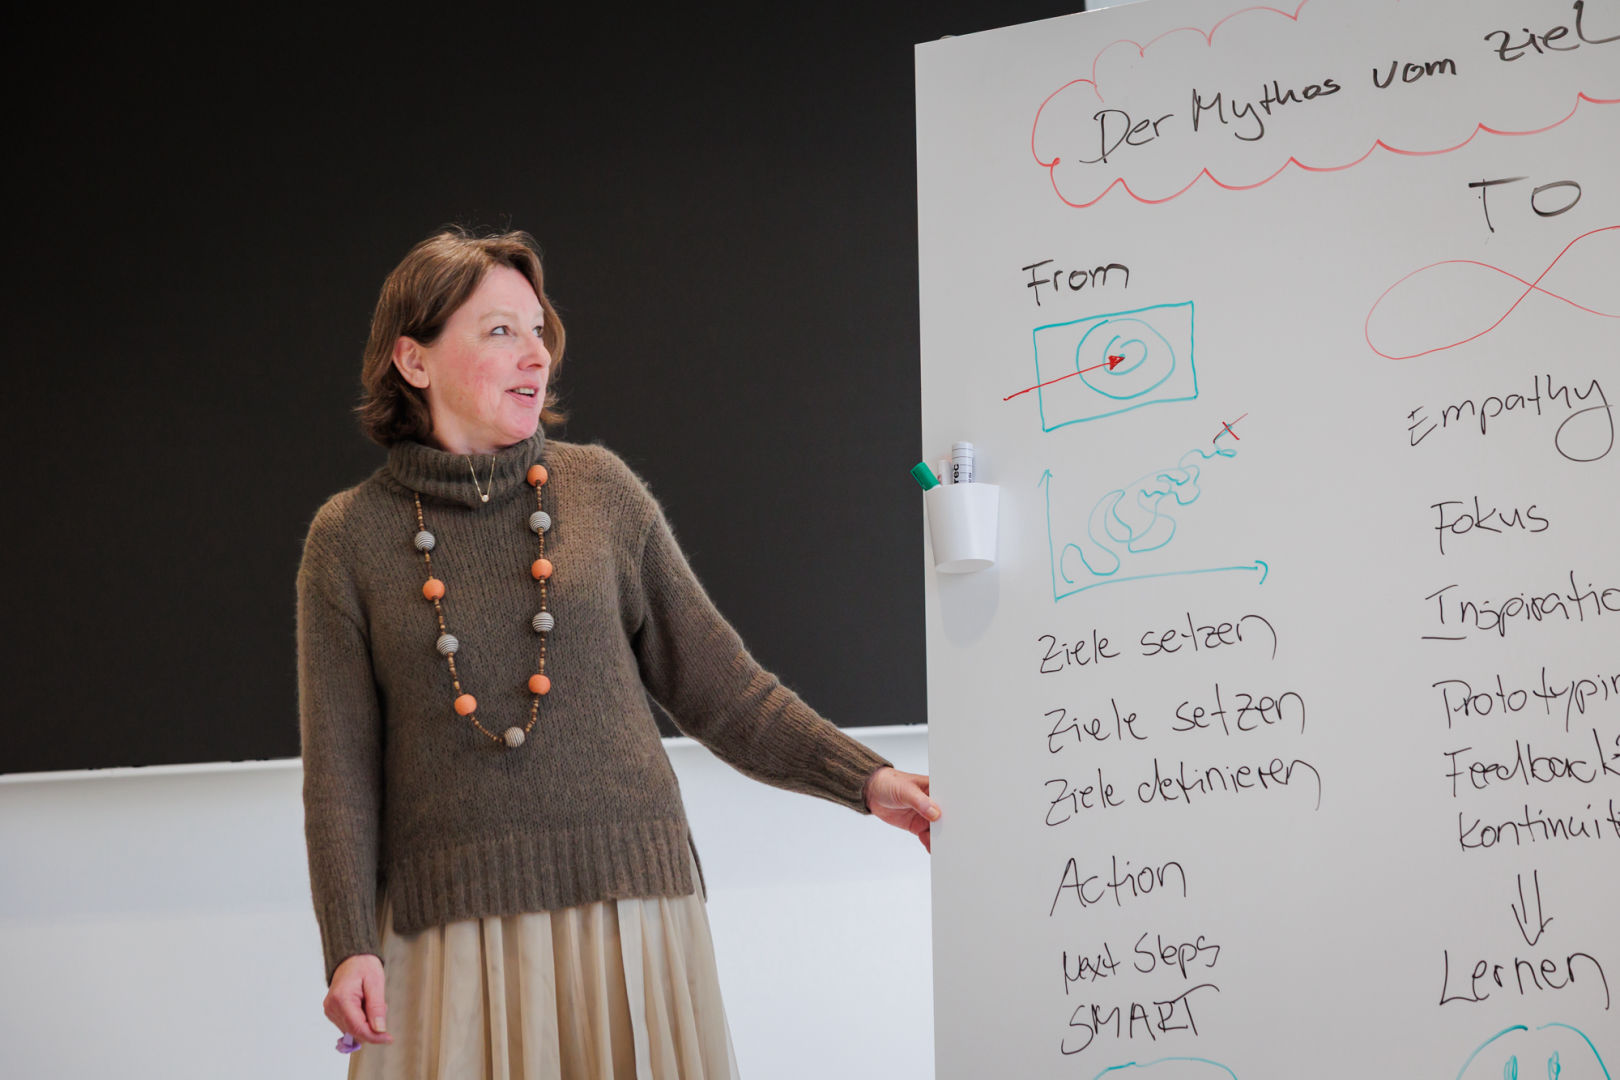 Der Mythos vom Ziel
From
TO
Ziele setzen
Ziele setzen
Ziele definieren
Action
Next Steps
SMART
Empathy
Fokus
Inspiratio
Prototypin
Feedback
Kontinuit
Lernen